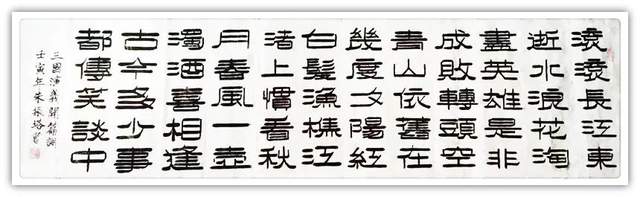 滚滚長江東
逝水浪花淘
盡英雄是非
成敗轉頭空
青山依舊在
幾度夕陽紅
白髮漁樵江
渚上慣看秋
月春風一壺
濁酒喜相逢
古今多少事
都傳笑談中
三國演義開篇詞
壬寅年朱振書